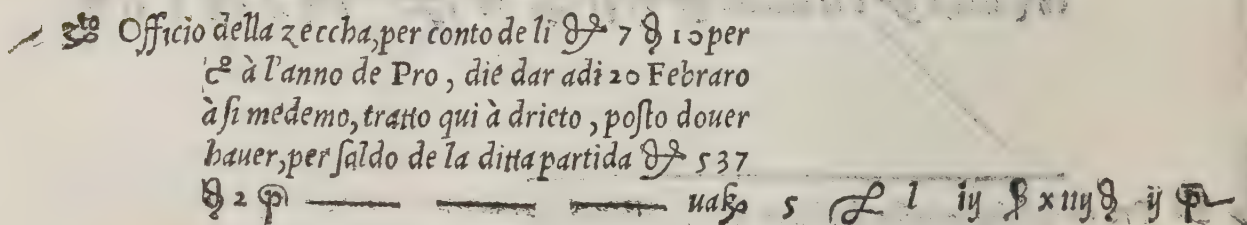 Officio della zeccha, per conto de li 7 10 per
c° à l'anno de Pro, die dar adi 20 Febraro
à ſi medemo, tratto qui à drieto, poſto douer
hauer, per ſaldo de la ditta partida 537
2 ual 5 l iij xiiij ij